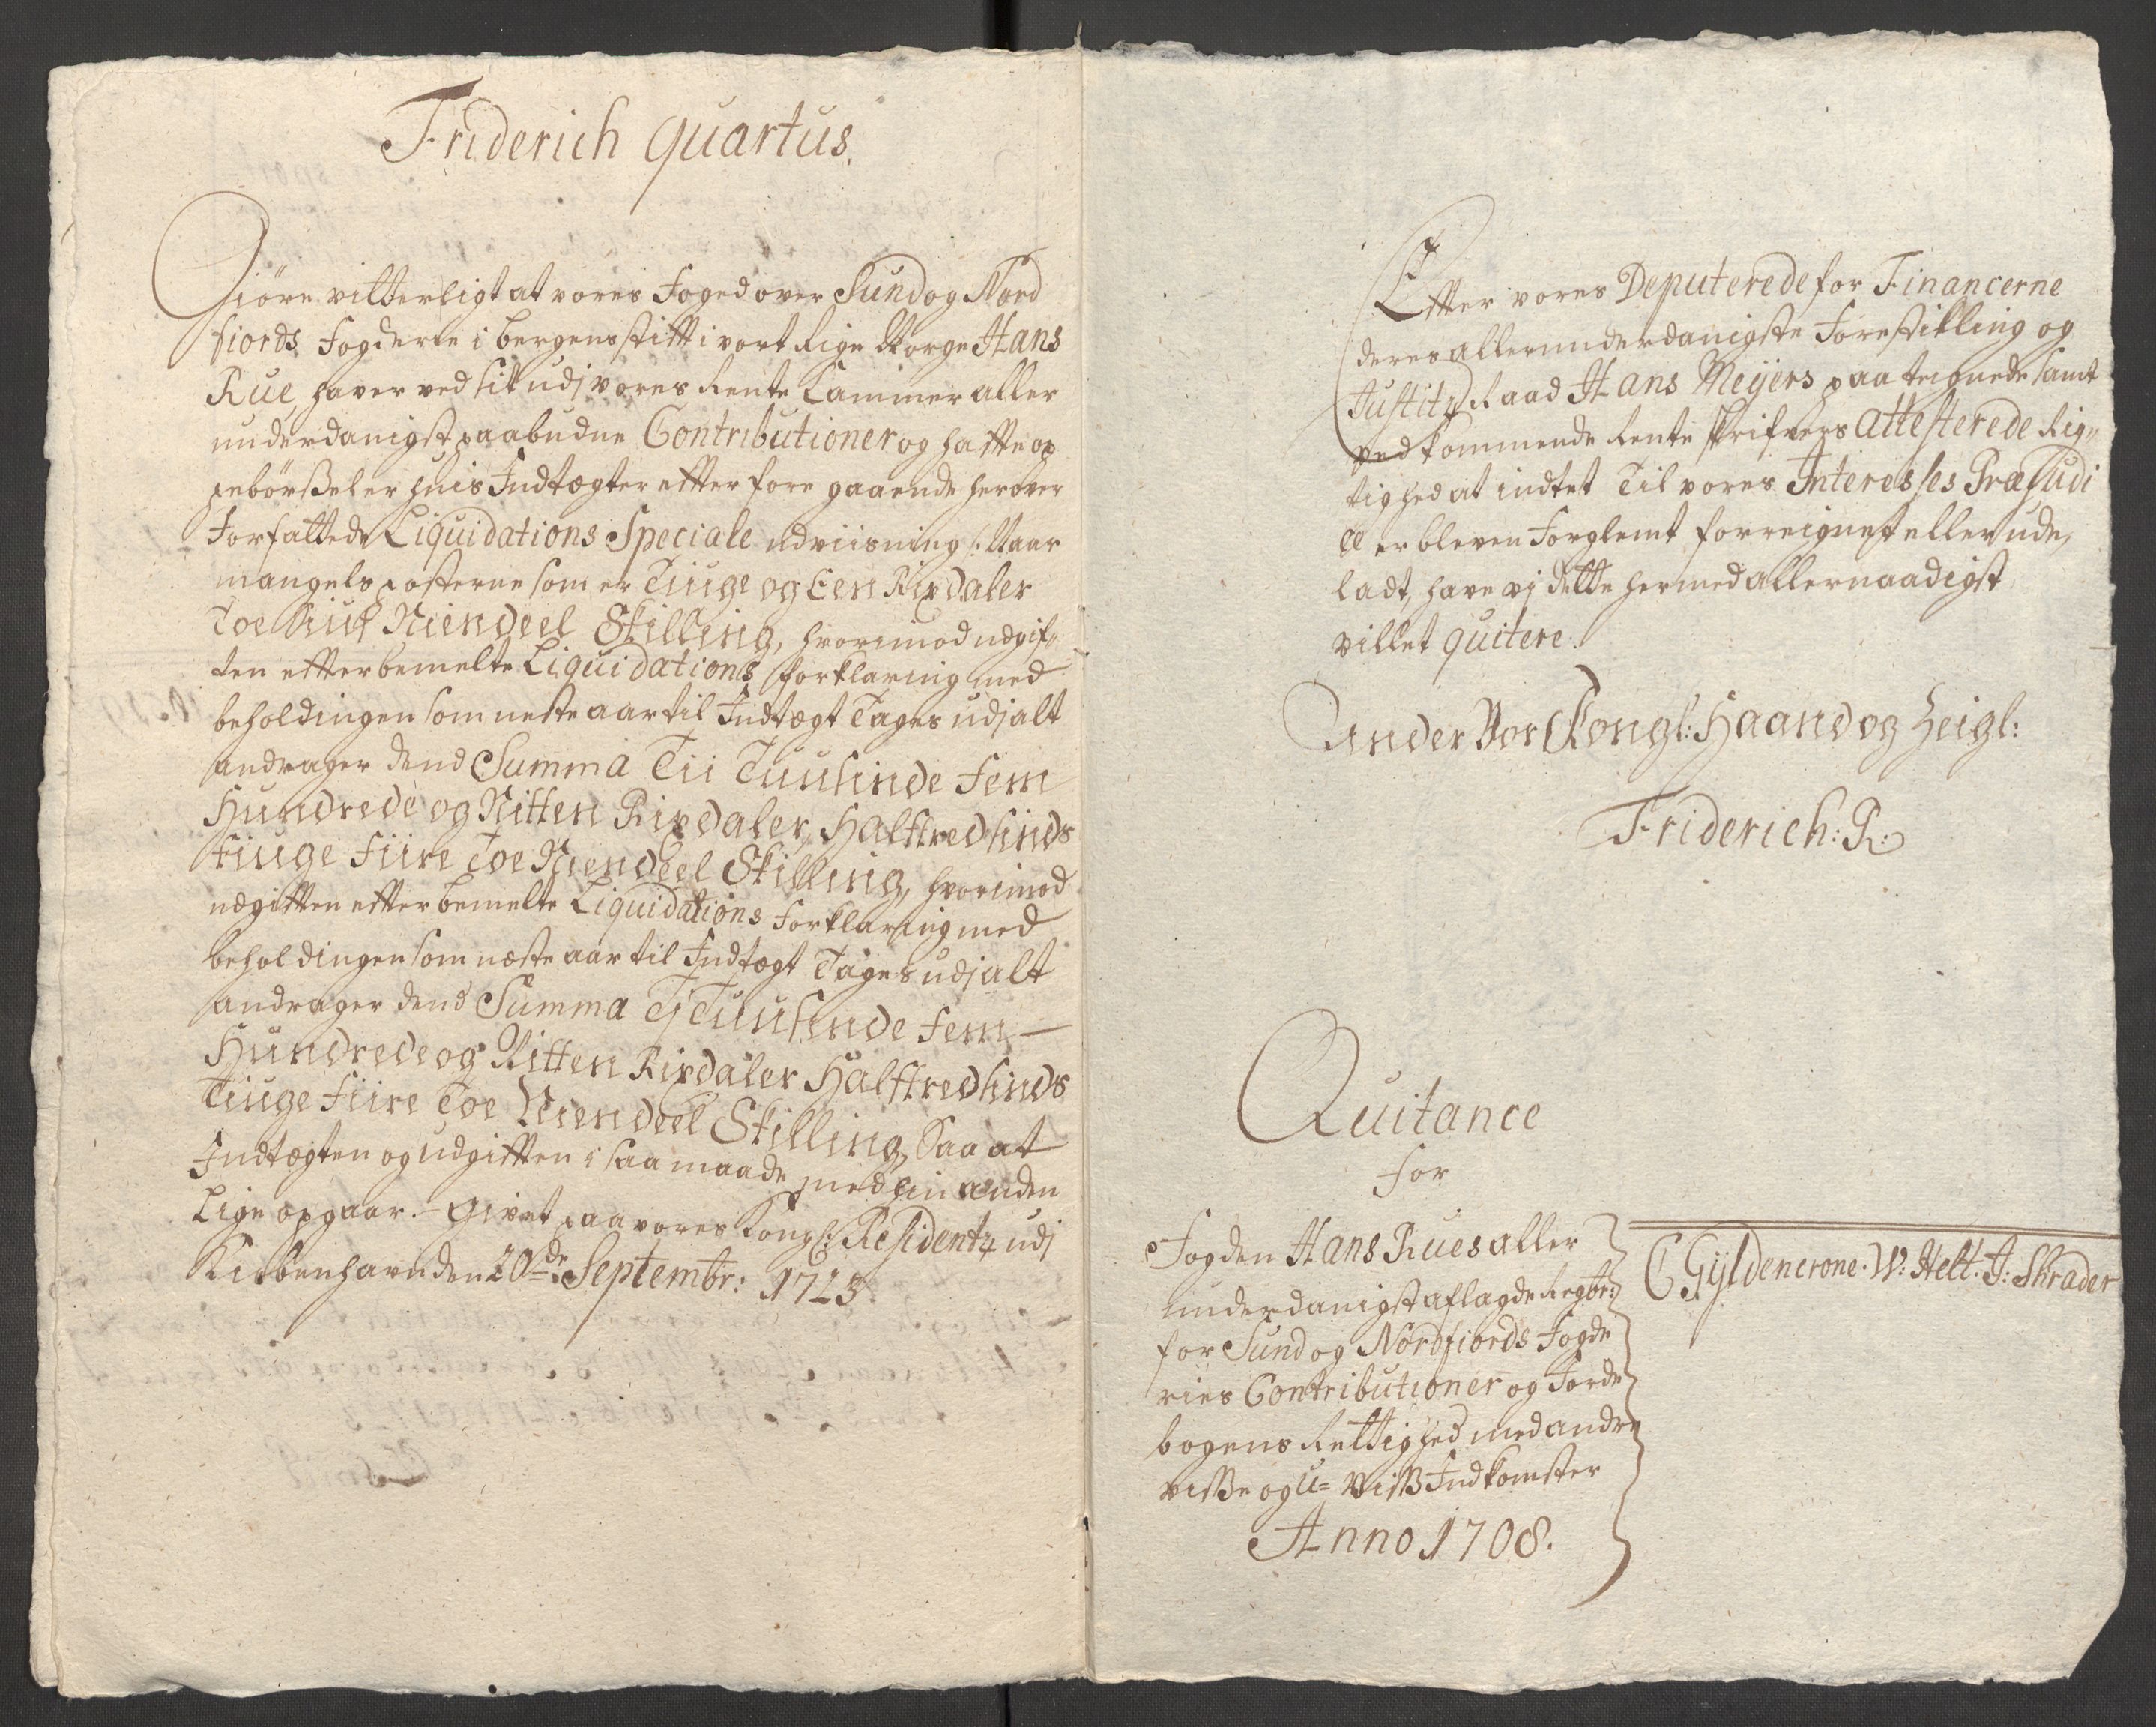 Friderich quartus.
Giöre vitterligt at vores Foged over Sund og Nord
fiords Fogderie i bergens stifft i vort Rige Norge Hans
Rue, haver ved sit udj vores Rente Cammer aller
underdanigst paabudne Contributioner og hafte op
pebörßeler huis Indtægter efter fore gaaende herover
Forfattede Liquidations Speciale udviisning /: Naar
mangels posterne som er Tiuge og Een Rixdaler
Toe Niendeel Skilling, hvorimod udgif„
ten efter bemelte Liquidations forklaring med
beholdingen som neste aar til Indtægt Tages udj alt
andrager dend Summa Tii Tuusinde Fem
Hundrede og Nitten Rixdaler, Halftredsinds
tiuge Fiire Toe Niendeel Skilling, hvorimod
udgiften efter bemelte Liquidations Forklaring med
beholdingen som næste aar til Indtægt Tages udj alt
andrager dend Summa Tj Tuusinde Fem —
Hundrede og Nitten Rixdaler Halftredsinds
Tiuge Fiire Toe Niendeel Skilling, Saa at
Indtægten og udgifften i saa maade med hin anden
Lige opgaar. – Givet paa vores Kongl: Residentz udj
Kiöbenhavn den 20de Septembr: 1713
Efter vores Deputerede for Financerne
deres allerunderdanigste Forestilling og
Justitz Raad Hans Meyers paategnede samt
vedkommende Rente skrifvers attesterede Rig„
tighed at indtet Til vores Interesses Præjudi
ce er bleven Forglemt forreignet eller ude„
ladt, have vj dette hermed allernaadigst
villet quitere.
Under Vor Kongl: Haand og Zeigl:
Friderich: R:
Quitance
for
Fogden Hans Rues aller
underdanigst aflagde Regbr:
for Sund og Nordfiords Fogde
ries Contributioner og Jorde
bogens Rettighed med andre
visße og U= Visß Indkomster
Anno 1708.
C Gÿldencrone. W: Helt. J: Shrader